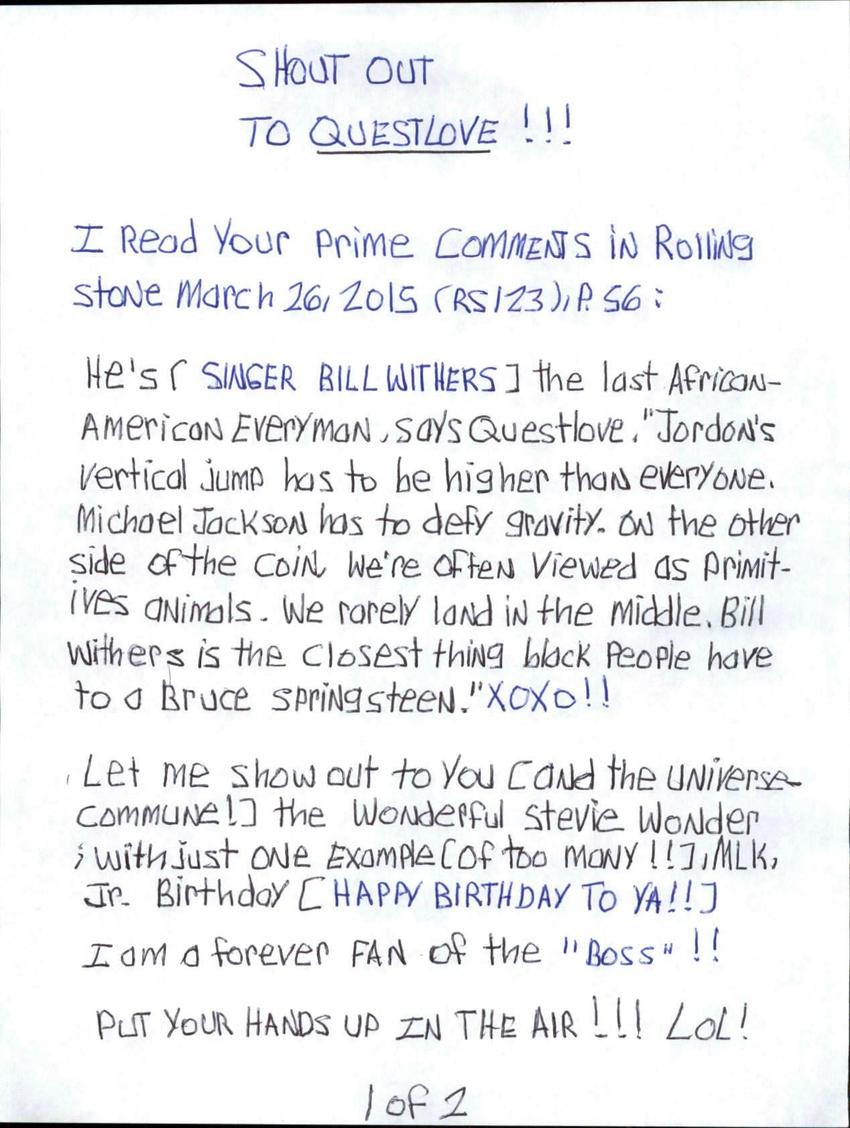 SHOUT OUT
TO QUESTLOVE !!!
I Read Your Prime COMMENTS iN Rolling
Stone March 26, 2015 (RS123), P. 56 :
He's [ SINGER BILL WITHERS ] the last African-
American Everyman, says Questlove. "Jordon's
vertical jump has to be higher than everyone.
Michael Jackson has to defy gravity. On the other
side of the coin, we're often viewed as primit-
ives animals. We rarely land in the middle. Bill
Withers is the closest thing black people have
to a Bruce Springsteen." XOXO!!
Let me show out to You [and the universe-
commune!] the Wonderful Stevie Wonder
; with just one Example [of too many !!], MLK,
Jr. Birthday [ HAPPY BIRTHDAY TO YA!! ]
I am a forever FAN of the "Boss" !!
PUT YOUR HANDS UP IN THE AIR !!! LOL!
1 of 2